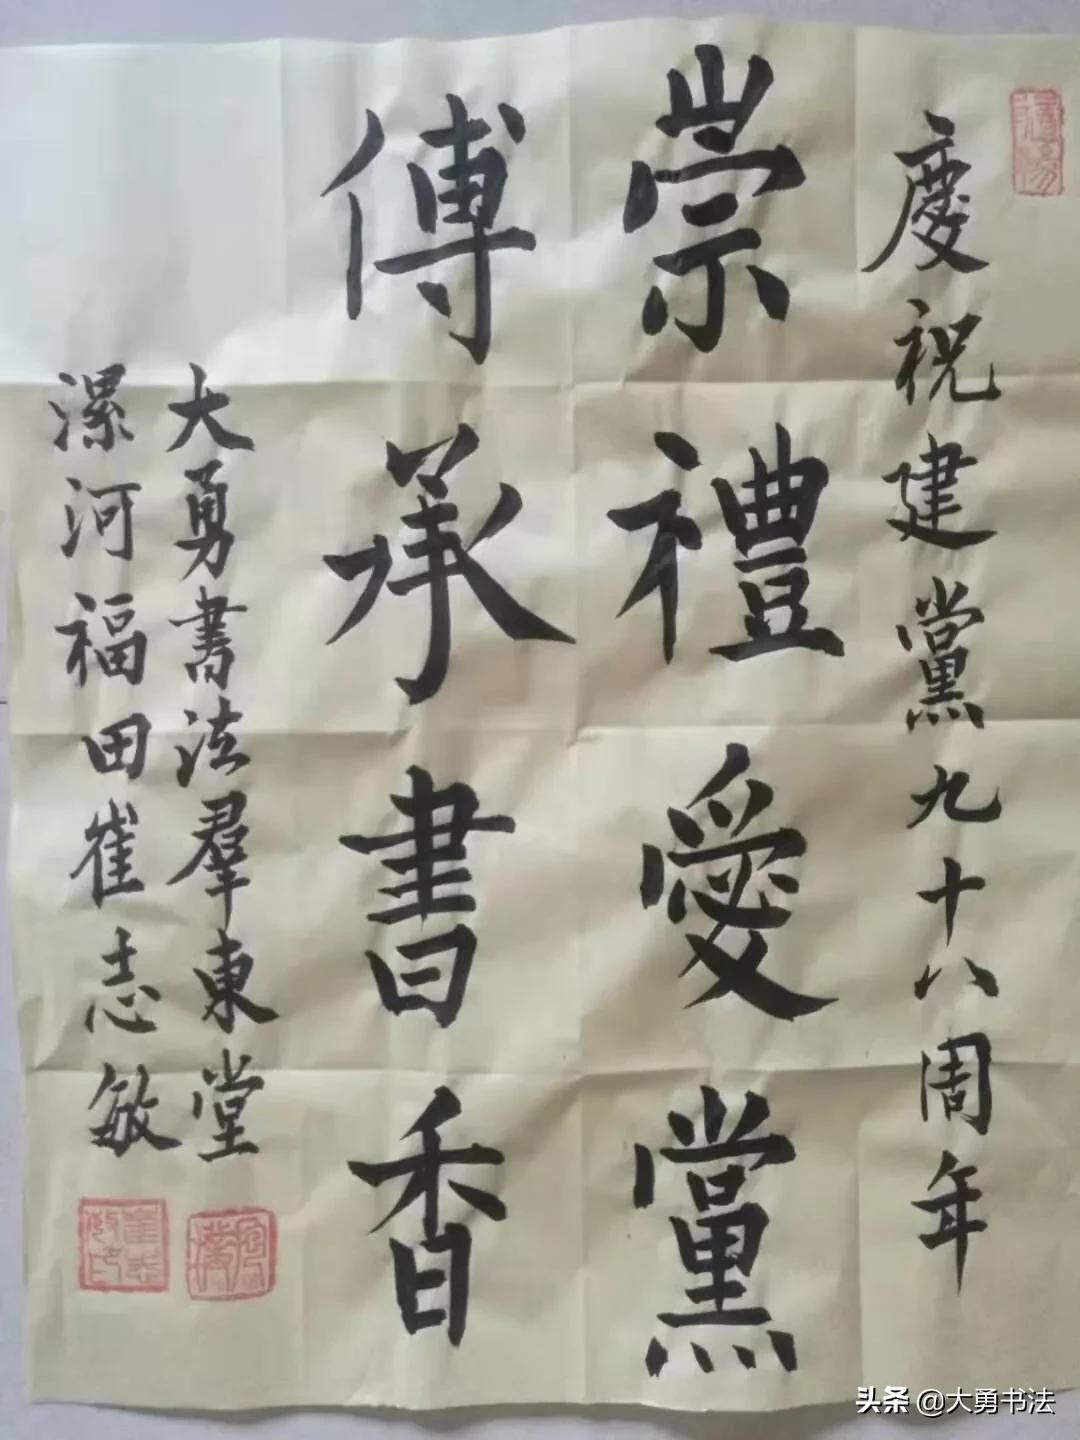 慶祝建黨九十八周年
崇禮愛黨
傳承書香
大勇書法羣東堂
漯河福田崔志敏
崔志敏印
头条 @大勇书法